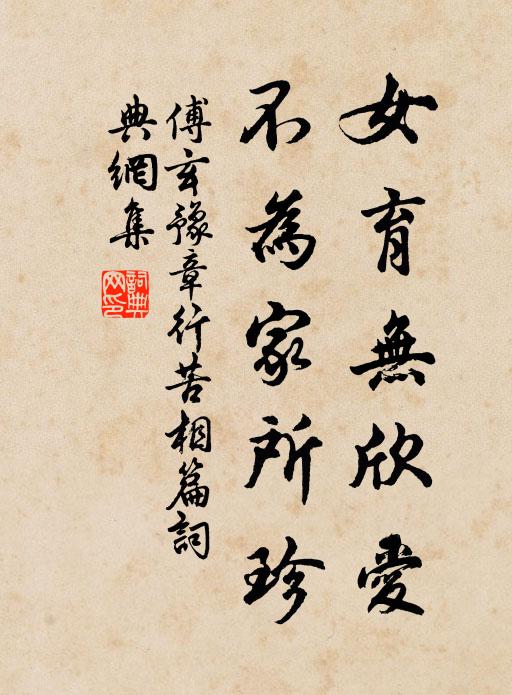 女育無欣愛
不為家所珍
傅玄豫章行苦相篇詞
典網集
詞典网印